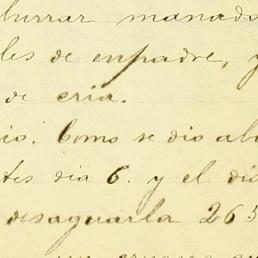 burrar manada
les de enpadre, y
de cria.
io. Como se dio
tes dia 6. y el
desaguarla 265
un